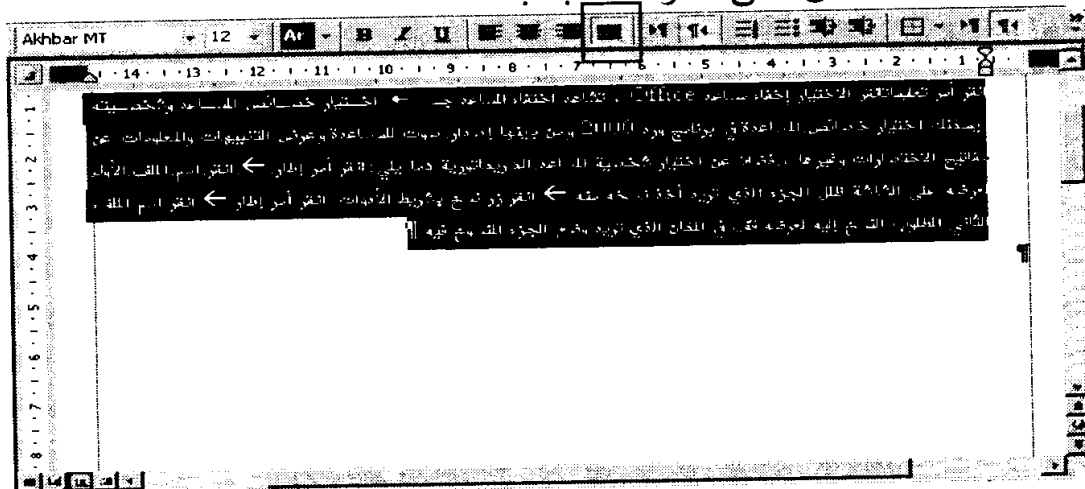 Akhbar MT 12 B I U
14 13 12 11 10 9 8 7 6 5 4 3 2 1
انقر أمر تعليماتانقر الاختيار إخفاء مساعد Office ، تشاهد اختفاء المساعد جـ ← اختيار خصائص المساعد وشخصيته
يمكنك اختيار خصائص المساعدة في برنامج ورد ومن بينها إصدار صوت للمساعدة وعرض التنبيهات والمعلومات عن
مفاتيح الاختصارات وغيرها ، فضلا عن اختيار شخصية المساعد كما يلي : انقر أمر إطار ← انقر اسم الملف الأول
لعرضه على الشاشة ظلل الجزء الذي تريد أخذ نسخه منه ← انقر زر نسخ بشريط الأدوات. انقر أمر إطار ← انقر اسم الملف
الثاني المطلوب النسخ إليه لعرضه قف في المكان الذي تريد وضع الجزء المنسوخ فيه
1
2
3
4
5
6
7
8